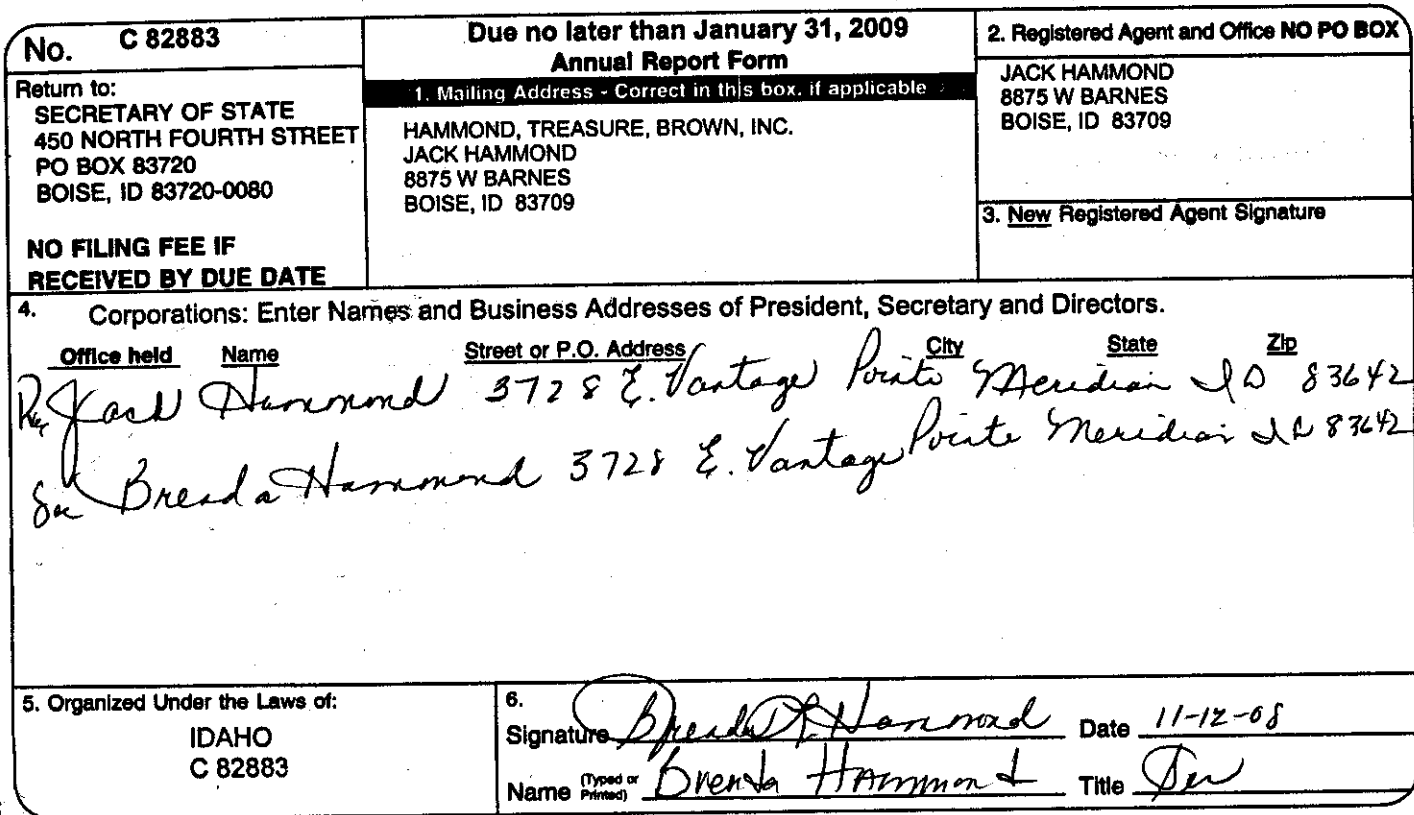 No. C 82883
Return to:
SECRETARY OF STATE
450 NORTH FOURTH STREET
PO BOX 83720
BOISE, ID 83720-0080
NO FILING FEE IF
RECEIVED BY DUE DATE
Due no later than January 31, 2009
Annual Report Form
1. Mailing Address - Correct in this box, if applicable
HAMMOND, TREASURE, BROWN, INC.
JACK HAMMOND
8875 W BARNES
BOISE, ID 83709
2. Registered Agent and Office NO PO BOX
JACK HAMMOND
8875 W BARNES
BOISE, ID 83709
3. New Registered Agent Signature
4. Corporations: Enter Names and Business Addresses of President, Secretary and Directors.
Office held Name Street or P.O. Address City State Zip
Jack Hammond 3728 E. Vantage Pointe Meridian ID 83642
Sec Brenda Hammond 3728 E. Vantage Pointe Meridian ID 83642
5. Organized Under the Laws of:
IDAHO
C 82883
6.
Signature Brenda L. Hammond Date 11-12-08
Name (Typed or Printed) Brenda Hammond Title Sec